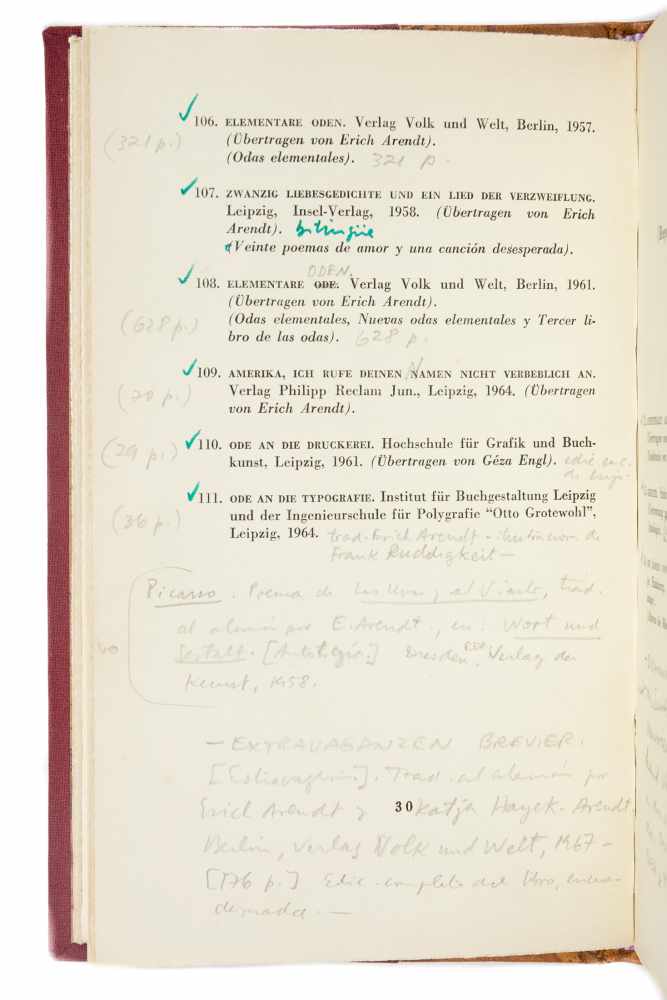 106. ELEMENTARE ODEN. Verlag Volk und Welt, Berlin, 1957.
(321 p.)
(Übertragen von Erich Arendt).
(Odas elementales). 321 p.
107. ZWANZIG LIEBESGEDICHTE UND EIN LIED DER VERZWEIFLUNG.
Leipzig, Insel-Verlag, 1958. (Übertragen von Erich
Arendt). bilingüe
(Veinte poemas de amor y una canción desesperada).
ODEN.
108. ELEMENTARE ODE. Verlag Volk und Welt, Berlin, 1961.
(Übertragen von Erich Arendt).
(628 p.)
(Odas elementales, Nuevas odas elementales y Tercer li-
bro de las odas). 628 p.
109. AMERIKA, ICH RUFE DEINEN NAMEN NICHT VERBEBLICH AN.
(70 p.)
Verlag Philipp Reclam Jun., Leipzig, 1964. (Übertragen
von Erich Arendt).
110. ODE AN DIE DRUCKEREI. Hochschule für Grafik und Buch-
(29 p.)
kunst, Leipzig, 1961. (Übertragen von Géza Engl).
111. ODE AN DIE TYPOGRAFIE. Institut für Buchgestaltung Leipzig
(36 p.)
und der Ingenieurschule für Polygrafie “Otto Grotewohl”,
Leipzig, 1964. trad. Erich Arendt - ilustracion. de
Frank Ruddigkeit —
Picasso. Poema de Las Uvas y el Viento, trad.
al alemán por E. Arendt., en: Wort und
Gestalt. [Antología] Dresden, Verlag der
Kunst, 1958.
— EXTRAVAGANZEN BREVIER.
[Estravagario]. Trad. al alemán por
Erich Arendt y Katja Hayek-Arendt.
30
Berlin, Verlag Volk und Welt, 1967 —
[176 p.] Edic. completa del libro, encua-
dernada. —